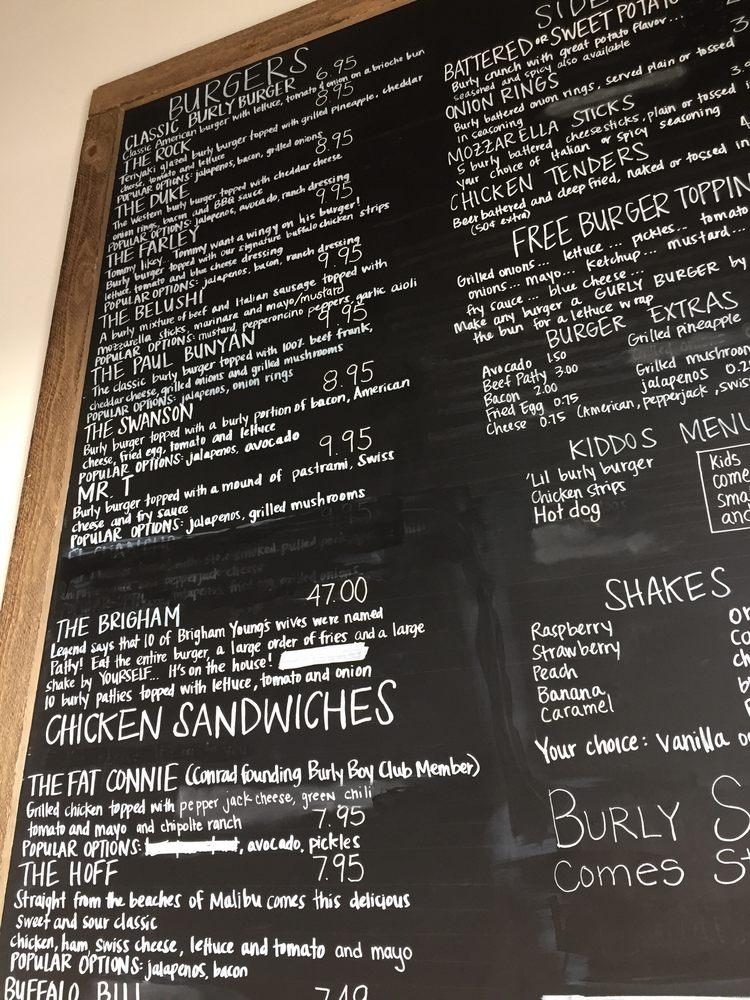 BURGERS
CLASSIC BURLY BURGER 6.95
Classic American burger with lettuce, tomato & onion on a brioche bun
THE ROCK 8.95
Teriyaki glazed burly burger topped with grilled pineapple, cheddar
cheese, tomato and lettuce
POPULAR OPTIONS: jalapenos, bacon, grilled onions
THE DUKE 8.95
The western burly burger topped with cheddar cheese
onion rings, bacon and BBQ sauce
POPULAR OPTIONS: jalapenos, avocado, ranch dressing
THE FARLEY 9.95
Tommy likey. Tommy want a wingy on his burger!
Burly burger topped with our signature buffalo chicken strips
lettuce, tomato and blue cheese dressing
POPULAR OPTIONS: jalapenos, bacon, ranch dressing
THE BELUSHI 9.95
A burly mixture of beef and Italian sausage topped with
mozzarella sticks, marinara and mayo/mustard
POPULAR OPTIONS: mustard, pepperoncino peppers, garlic aioli
THE PAUL BUNYAN 9.95
The classic burly burger topped with 100% beef frank,
cheddar cheese, grilled onions and grilled mushrooms
POPULAR OPTIONS: jalapenos, onion rings
THE SWANSON 8.95
Burly burger topped with a burly portion of bacon, American
cheese, fried egg, tomato and lettuce
POPULAR OPTIONS: jalapenos, avocado
MR. T 9.95
Burly burger topped with a mound of pastrami, Swiss
cheese and fry sauce
POPULAR OPTIONS: jalapenos, grilled mushrooms
THE BRIGHAM 47.00
Legend says that 10 of Brigham Young's wives were named
Patty! Eat the entire burger, a large order of fries and a large
shake by YOURSELF... It's on the house!
10 burly patties topped with lettuce, tomato and onion
CHICKEN SANDWICHES
THE FAT CONNIE (Conrad founding Burly Boy Club Member)
Grilled chicken topped with pepper jack cheese, green chili
tomato and mayo and chipolte ranch 7.95
POPULAR OPTIONS: avocado, pickles
THE HOFF 7.95
Straight from the beaches of Malibu comes this delicious
sweet and sour classic
chicken, ham, swiss cheese, lettuce and tomato and mayo
POPULAR OPTIONS: jalapenos, bacon
BUFFALO BILL 7.49
SIDE
BATTERED or SWEET POTATO
Burly crunch with great potato flavor...
seasoned and spicy also available
ONION RINGS
Burly battered onion rings, served plain or tossed
in seasoning
MOZZARELLA STICKS
5 burly battered cheese sticks, plain or tossed i
your choice of Italian or spicy seasoning
CHICKEN TENDERS
Beer battered and deep fried, naked or tossed in
(50¢ extra)
FREE BURGER TOPPIN
Grilled onions... lettuce... pickles... tomato
onions... mayo... ketchup... mustard...
fry sauce... blue cheese...
Make any burger a GURLY BURGER by
the bun for a lettuce wrap
BURGER EXTRAS
Avocado 1.50
Beef Patty 3.00
Bacon 2.00
Fried Egg 0.75
Cheese 0.75 (American, pepperjack, swis
Grilled pineapple
Grilled mushroom
jalapenos 0.2
KIDDOS MENU
'Lil burly burger
Chicken strips
Hot dog
Kids
come
sma
and
SHAKES
Raspberry
Strawberry
Peach
Banana
Caramel
Your choice: vanilla o
BURLY S
Comes St